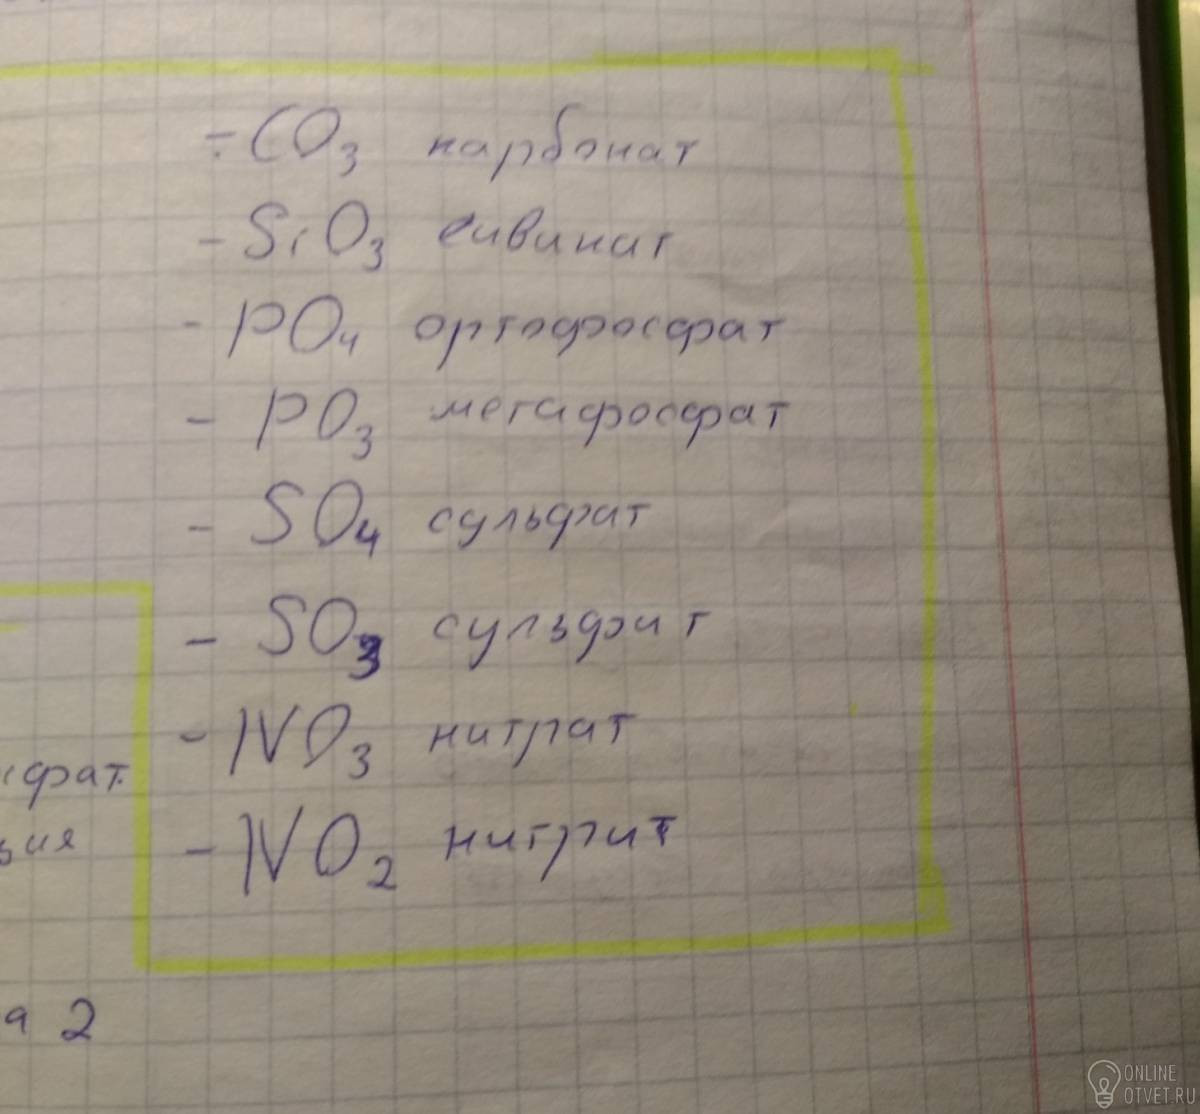 - CO₃ карбонат
- SiO₃ силикат
- PO₄ ортофосфат
- PO₃ метафосфат
- SO₄ сульфат
- SO₃ сульфит
- NO₃ нитрат
сфат
- NO₂ нитрит
ия
а 2
ONLINE
OTVET.RU